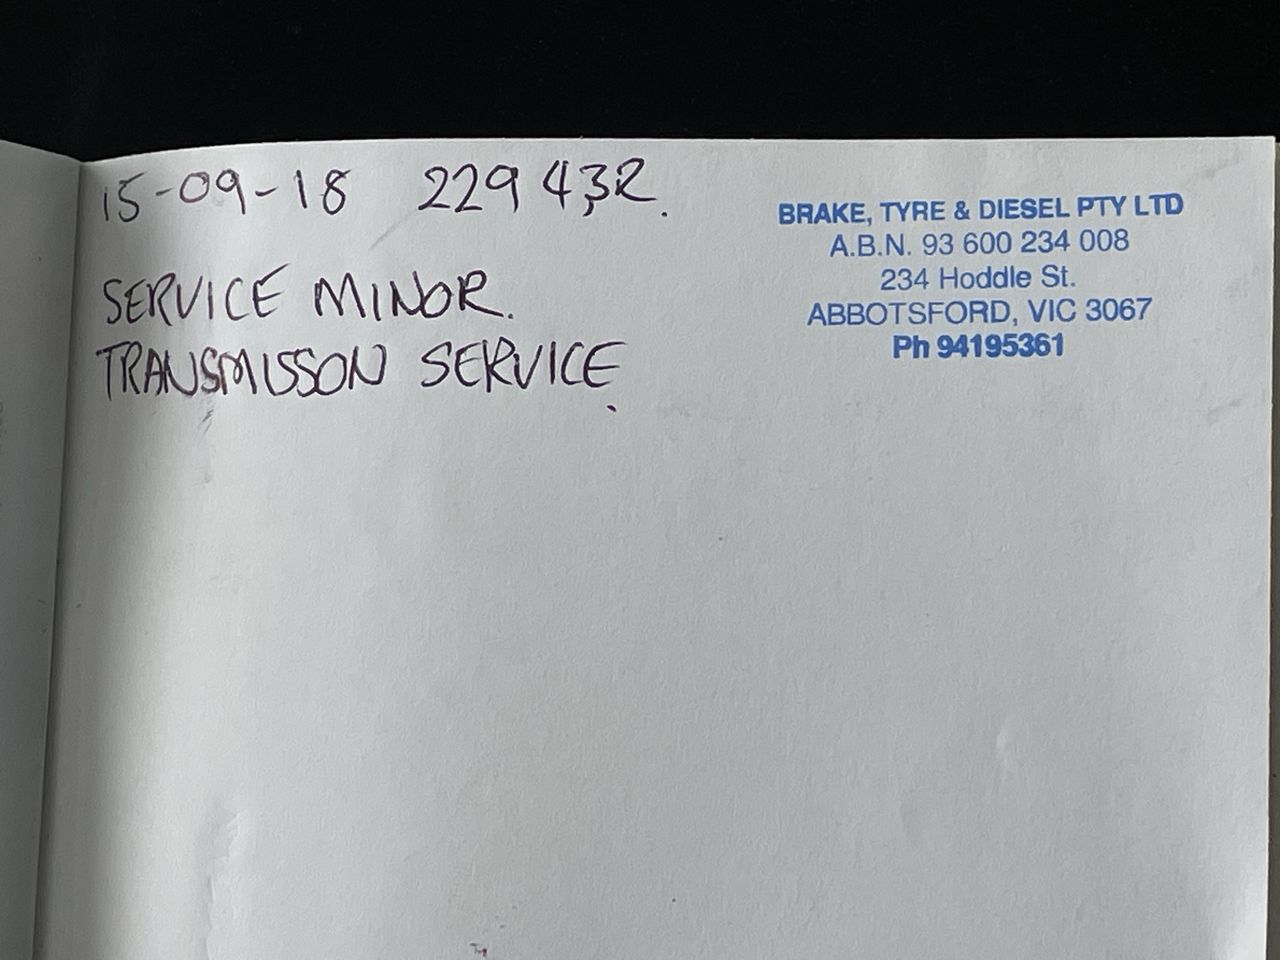 15-09-18 229432.
SERVICE MINOR.
TRANSMISSON SERVICE.
BRAKE, TYRE & DIESEL PTY LTD
A.B.N. 93 600 234 008
234 Hoddle St.
ABBOTSFORD, VIC 3067
Ph 94195361